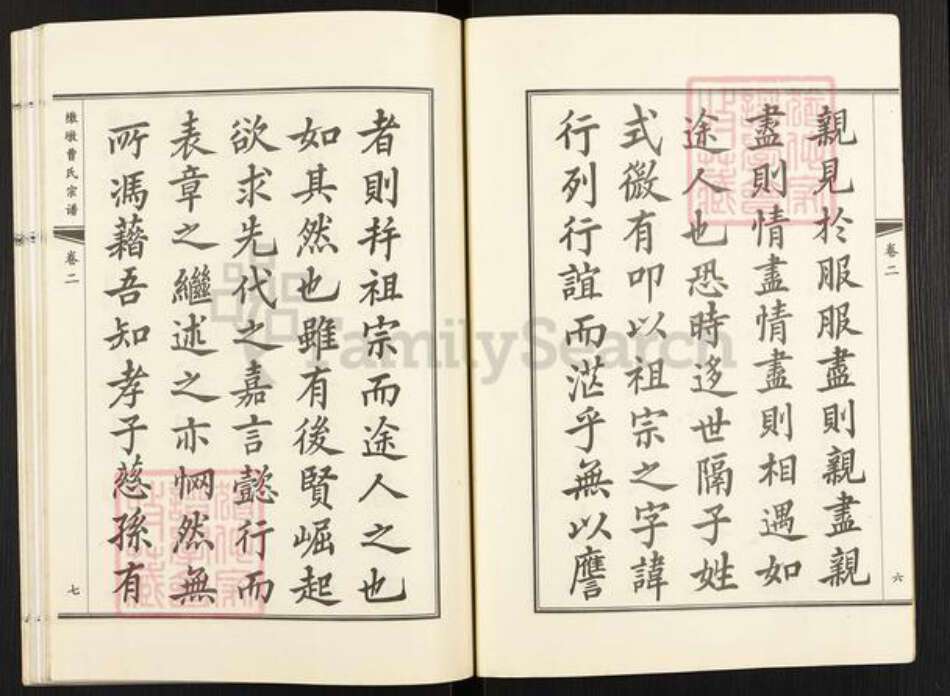 卷二
六
親見於服服盡則親盡親
盡則情盡情盡則相遇如
途人也恐時迻世隔子姓
式微有叩以祖宗之字諱
行列行誼而茫乎無以譍
者則并祖宗而途人之也
如其然也雖有後賢崛起
欲求先代之嘉言懿行而
表章之繼述之亦惘然無
所馮藉吾知孝子慈孫有
墩曹氏宗谱
卷二
七
FamilySearch